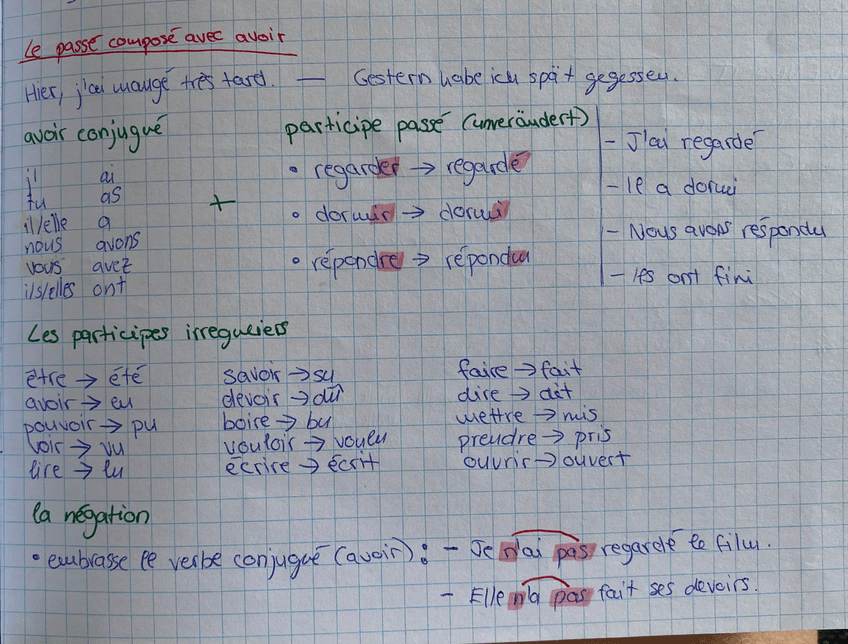 Le passé composé avec avoir
Hier, j'ai mangé très tard. — Gestern habe ich spät gegessen.
avoir conjugué
j' ai
tu as
il/elle a
nous avons
vous avez
ils/elles ont
+
participe passé (unverändert)
• regarder → regardé
• dormir → dormi
• répondre → répondu
- J'ai regardé
- Il a dormi
- Nous avons respondu
- Ils ont fini
Les participes irreguliers
être → été
avoir → eu
pouvoir → pu
voir → vu
lire → lu
savoir → su
devoir → dû
boire → bu
vouloir → voulu
écrire → écrit
faire → fait
dire → dit
mettre → mis
prendre → pris
ouvrir → ouvert
la négation
• embrasse le verbe conjugué (avoir) : - Je n'ai pas regardé le film.
- Elle n'a pas fait ses devoirs.